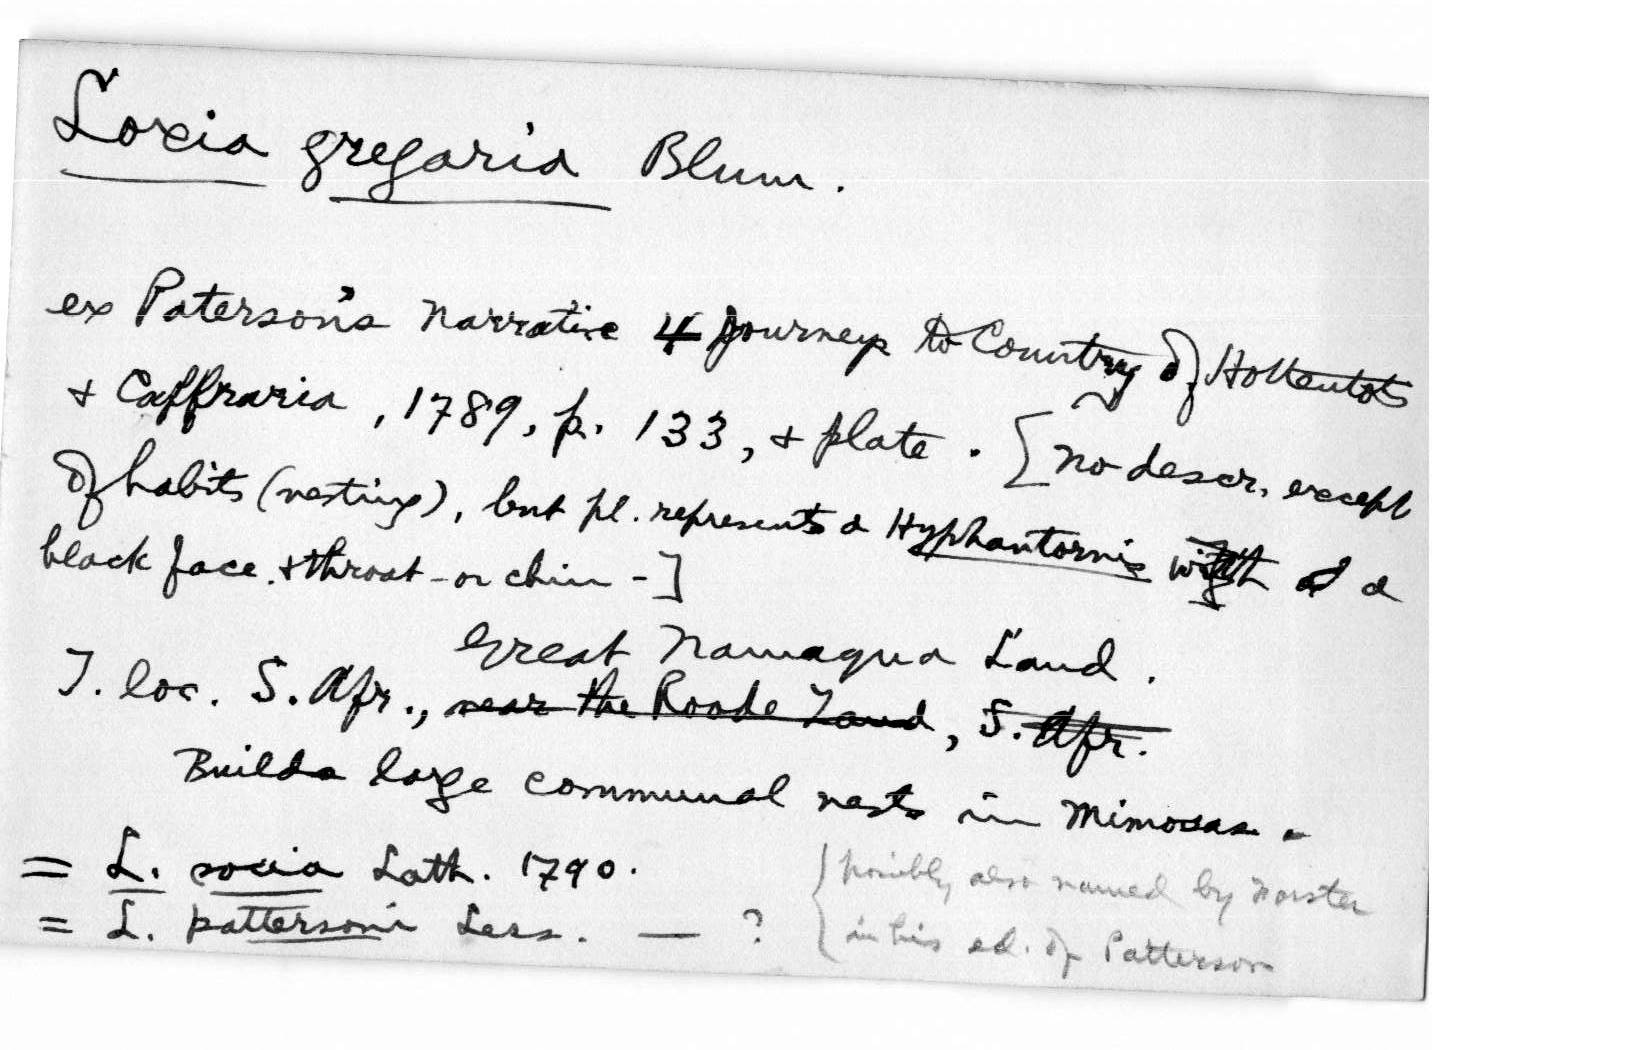 Loxia gregaria Blum.
ex Paterson's Narrative 4 Journeys to Country of Hottentots
& Caffraria, 1789, p. 133, & plate. [no descr. except
of habits (nesting), but pl. represents a Hyphantornis with a
black face & throat - or chin -]
Great Namaqua Land.
T. loc. S. Afr., near the Roode Land, S. Afr.
Builds large communal nests in Mimosas.
= L. socia Lath. 1790.
= L. pattersoni Less. — ?
{possibly also named by Forster
in his ed. of Patterson